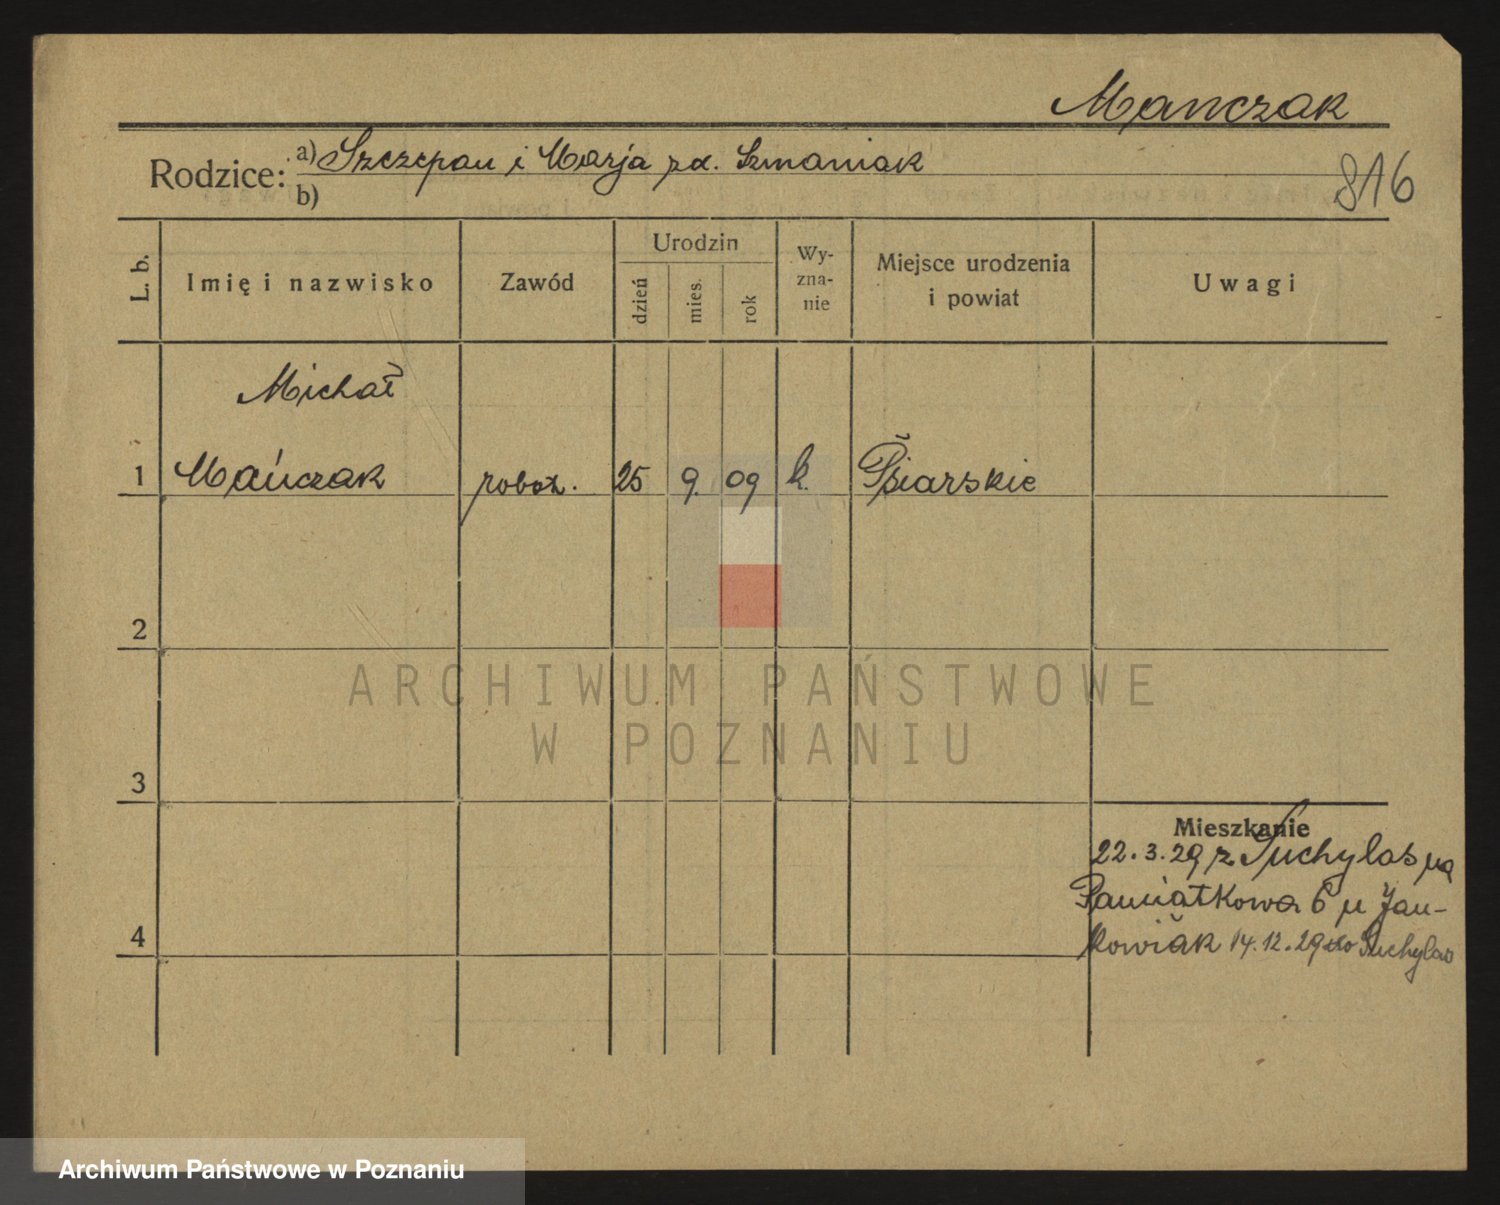 Manczak
Rodzice: a) Szczepan i Marja zd. Szmaniak
b)
816
L. b.
Imię i nazwisko
Zawód
Urodzin
dzień
mies.
rok
Wy-
zna-
nie
Miejsce urodzenia
i powiat
Uwagi
Michał
1 Mańczak robotn. 25 9. 09 k. Psiarskie
2
3
4
Mieszkanie
22.3.29 z Suchylas na
Pamiątkowa 6 u Jan-
kowiak 14.12.29 do Suchylas
ARCHIWUM PAŃSTWOWE
W POZNANIU
Archiwum Państwowe w Poznaniu